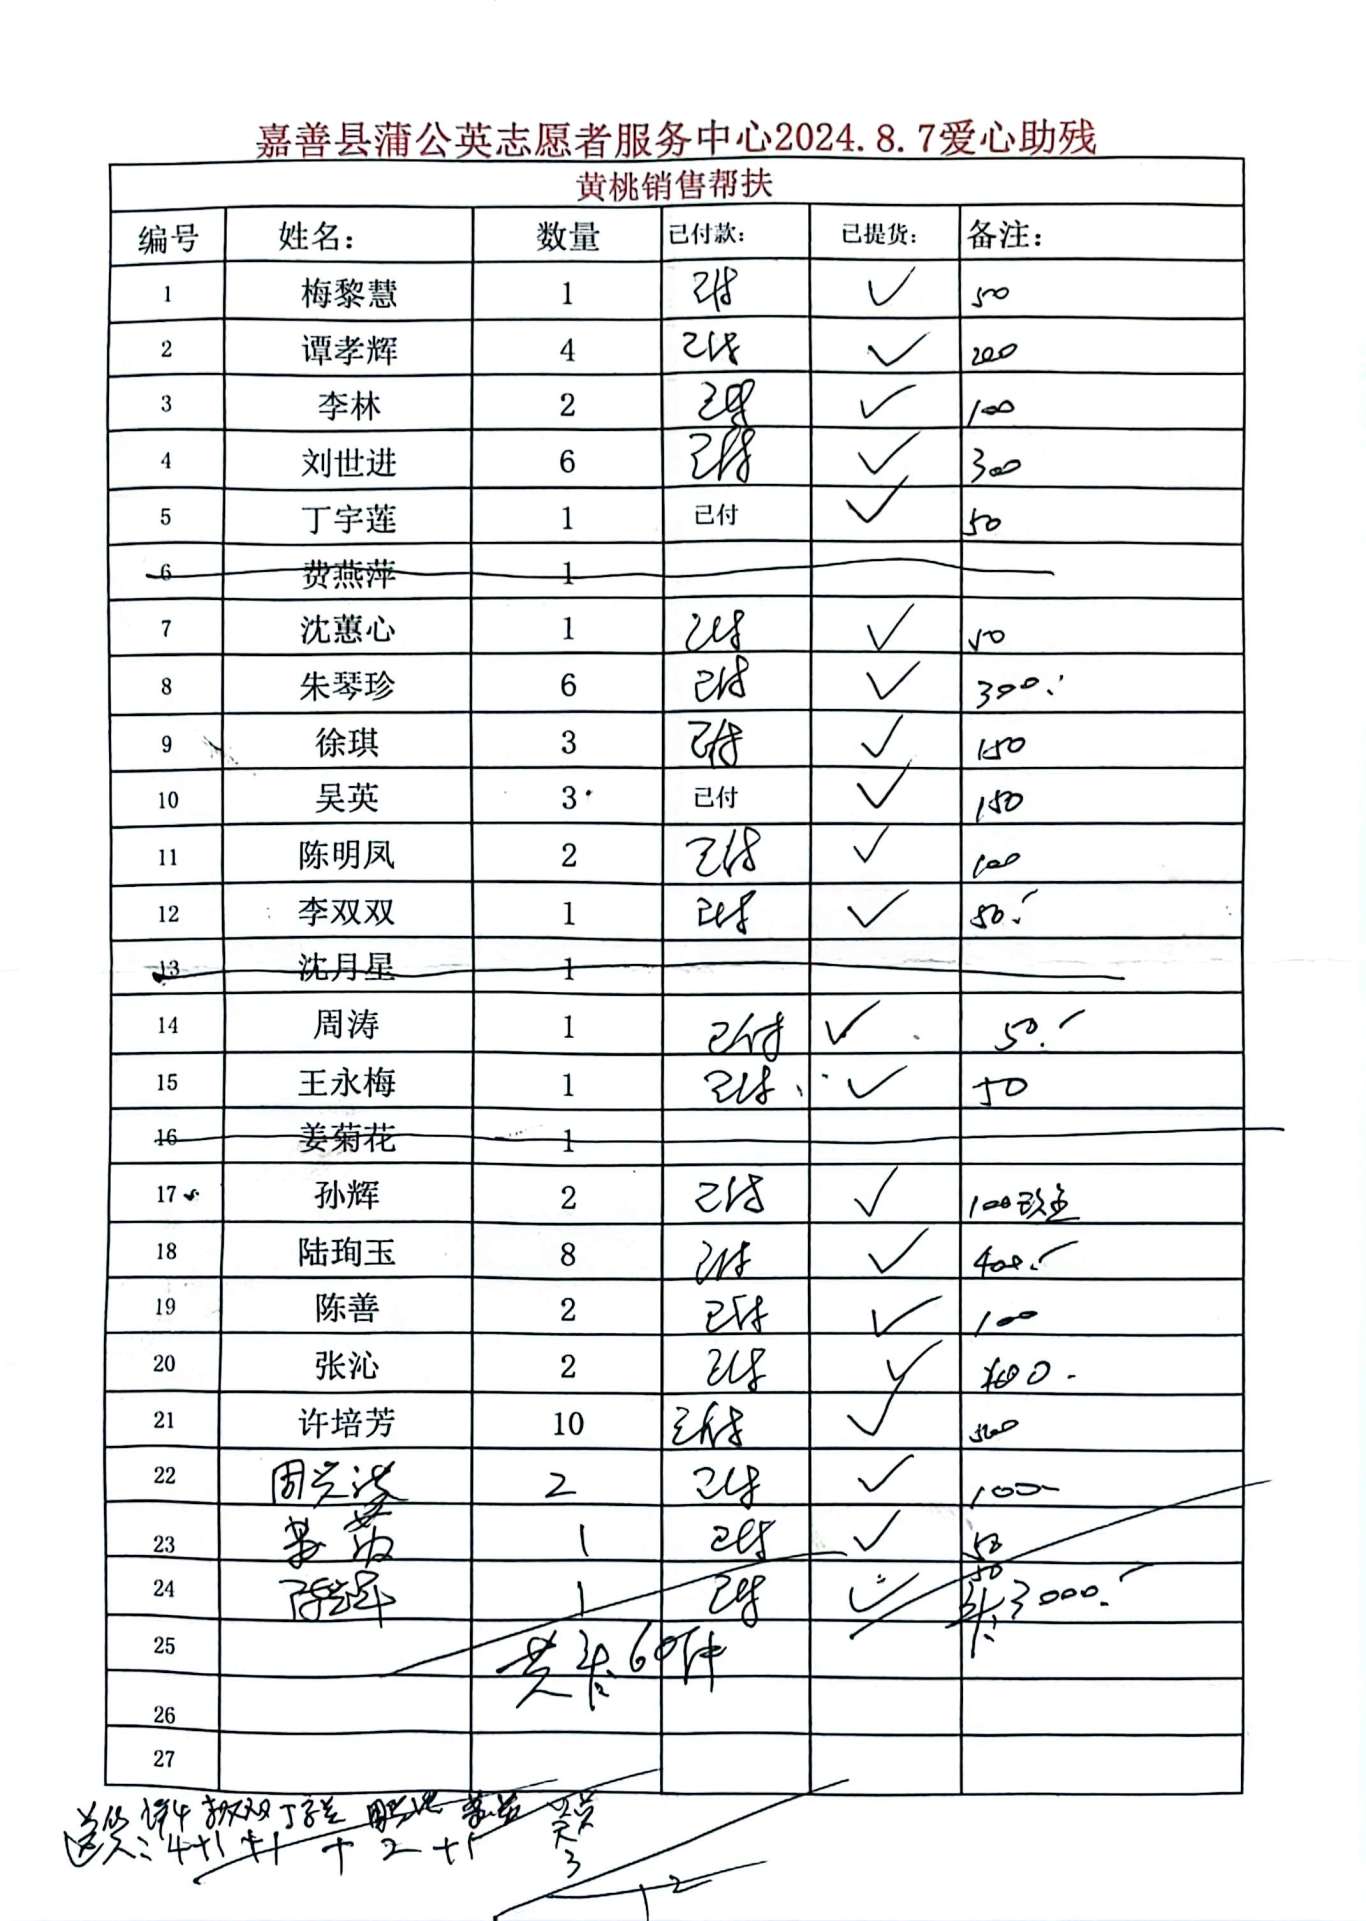 嘉善县蒲公英志愿者服务中心2024.8.7爱心助残
黄桃销售帮扶
编号 姓名: 数量 已付款: 已提货: 备注:
1 梅黎慧 1 已付 ✓ 50
2 谭孝辉 4 已付 ✓ 200
3 李林 2 已付 ✓ 100
4 刘世进 6 已付 ✓ 300
5 丁宇莲 1 已付 ✓ 50
6 费燕萍 1
7 沈蕙心 1 已付 ✓ 50
8 朱琴珍 6 已付 ✓ 300.
9 徐琪 3 已付 ✓ 150
10 吴英 3 已付 ✓ 150
11 陈明凤 2 已付 ✓ 100
12 李双双 1 已付 ✓ 50.
13 沈月星 1
14 周涛 1 已付 ✓ 50.
15 王永梅 1 已付 ✓ 50
16 姜菊花 1
17 孙辉 2 已付 ✓ 100
18 陆珣玉 8 已付 ✓ 400.
19 陈善 2 已付 ✓ 100
20 张沁 2 已付 ✓ 100.
21 许培芳 10 已付 ✓ 500
22 2 已付 ✓ 100
23 1 已付 ✓ 50
24 1 已付 ✓ 50
3000.
25 共 60件
26
27
送货: 4+1+1+2+1
吴英
3
12